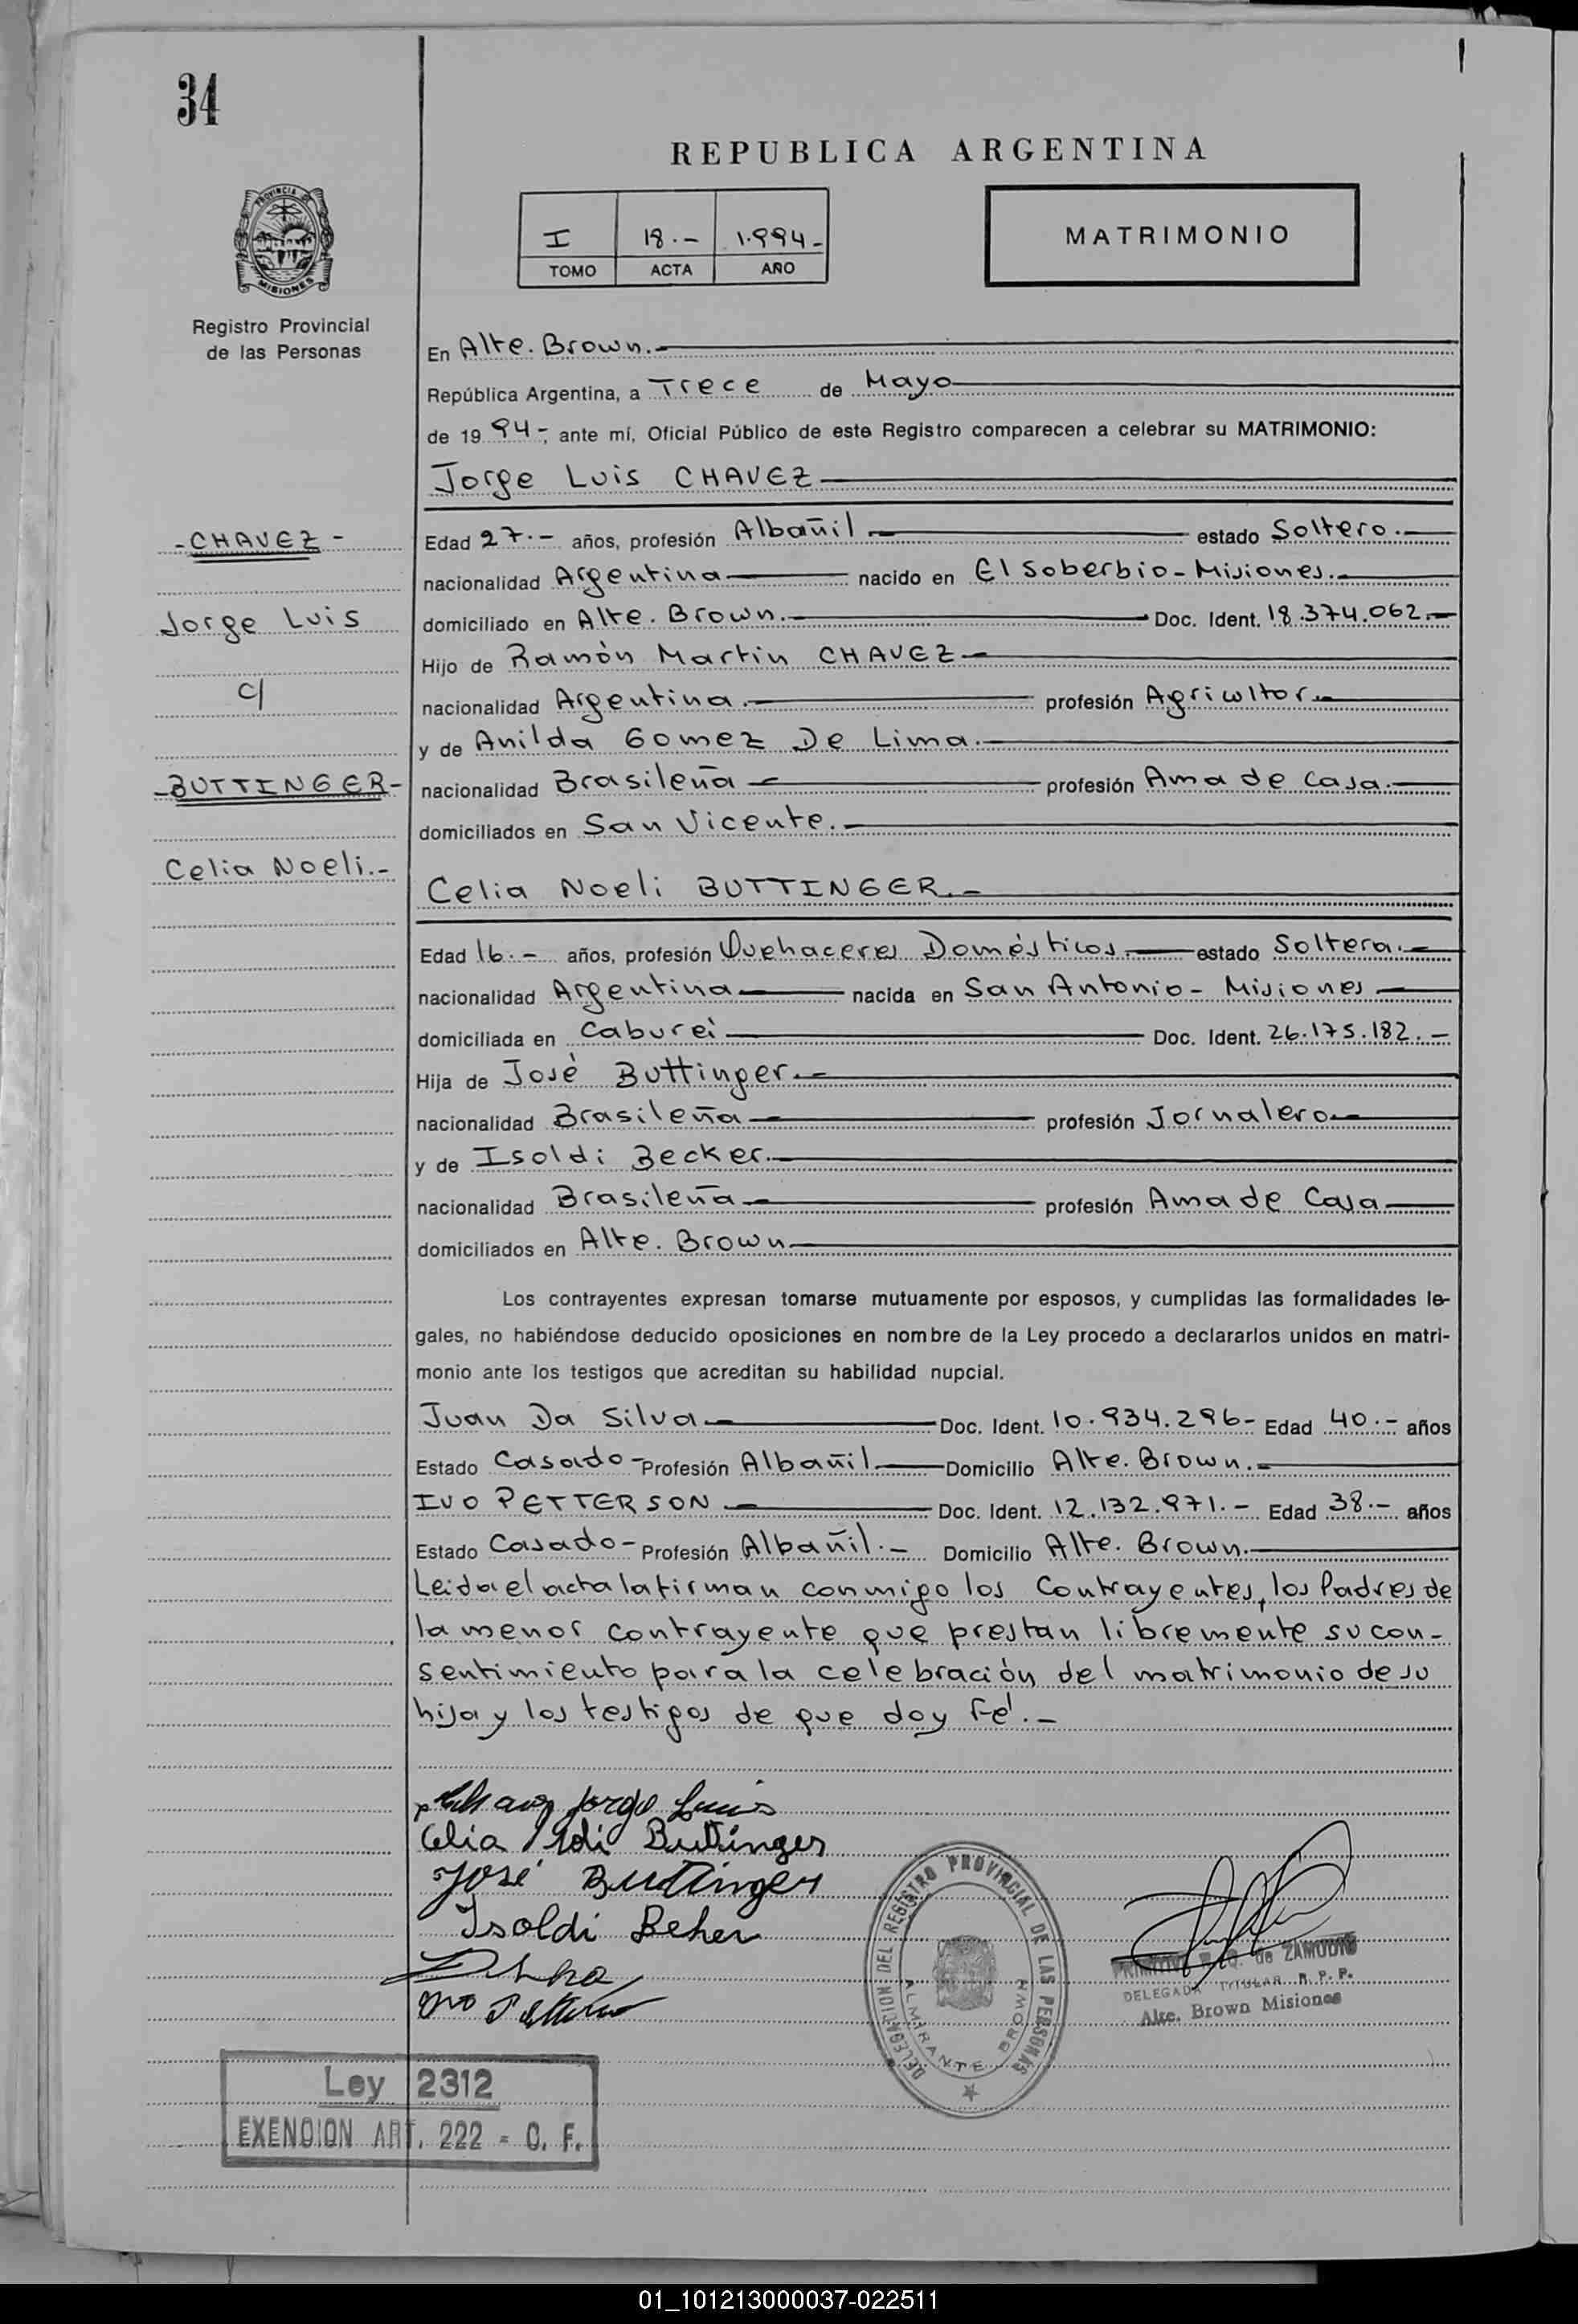 34
REPUBLICA ARGENTINA
PROVINCIA DE MISIONES
Registro Provincial
de las Personas
I 18.- 1.994-
TOMO ACTA AÑO
MATRIMONIO
En Alte. Brown.-
República Argentina, a Trece de Mayo
de 19 94-, ante mí, Oficial Público de este Registro comparecen a celebrar su MATRIMONIO:
Jorge Luis CHAVEZ
-CHAVEZ-
Jorge Luis
c/
-BUTTINGER-
Celia Noeli.-
Edad 27.- años, profesión Albañil estado Soltero.-
nacionalidad Argentina nacido en El Soberbio-Misiones.-
domiciliado en Alte. Brown.- Doc. Ident. 18.374.062.-
Hijo de Ramón Martin CHAVEZ-
nacionalidad Argentina.- profesión Agricultor.-
y de Anilda Gomez De Lima.-
nacionalidad Brasileña- profesión Ama de Casa.-
domiciliados en San Vicente.-
Celia Noeli BUTTINGER.-
Edad 16.- años, profesión Quehaceres Domésticos.- estado Soltera.-
nacionalidad Argentina nacida en San Antonio- Misiones-
domiciliada en Caburei Doc. Ident. 26.175.182.-
Hija de José Buttinger.-
nacionalidad Brasileña- profesión Jornalero.-
y de Isoldi Becker.-
nacionalidad Brasileña- profesión Ama de Casa-
domiciliados en Alte. Brown-
Los contrayentes expresan tomarse mutuamente por esposos, y cumplidas las formalidades le-
gales, no habiéndose deducido oposiciones en nombre de la Ley procedo a declararlos unidos en matri-
monio ante los testigos que acreditan su habilidad nupcial.
Juan Da Silva.- Doc. Ident. 10.934.296- Edad 40.- años
Estado Casado- Profesión Albañil.- Domicilio Alte. Brown.-
IVO PETTERSON.- Doc. Ident. 12.132.971.- Edad 38.- años
Estado Casado- Profesión Albañil.- Domicilio Alte. Brown.-
Leida el acta la firman conmigo los Contrayentes, los Padres de
la menor contrayente que prestan libremente su con-
sentimiento para la celebración del matrimonio de su
hija y los testigos de que doy Fé.-
Jorge Luis
Celia Buttinger
José Buttinger
Isoldi Beher
Ivo
DELEGACION DEL REGISTRO PROVINCIAL DE LAS PERSONAS
ALMIRANTE BROWN
Q. de ZAMUDIO
DELEGADA TITULAR R. P. P.
Alte. Brown Misiones
Ley 2312
EXENCION ART. 222 - C. F.
01_101213000037-022511